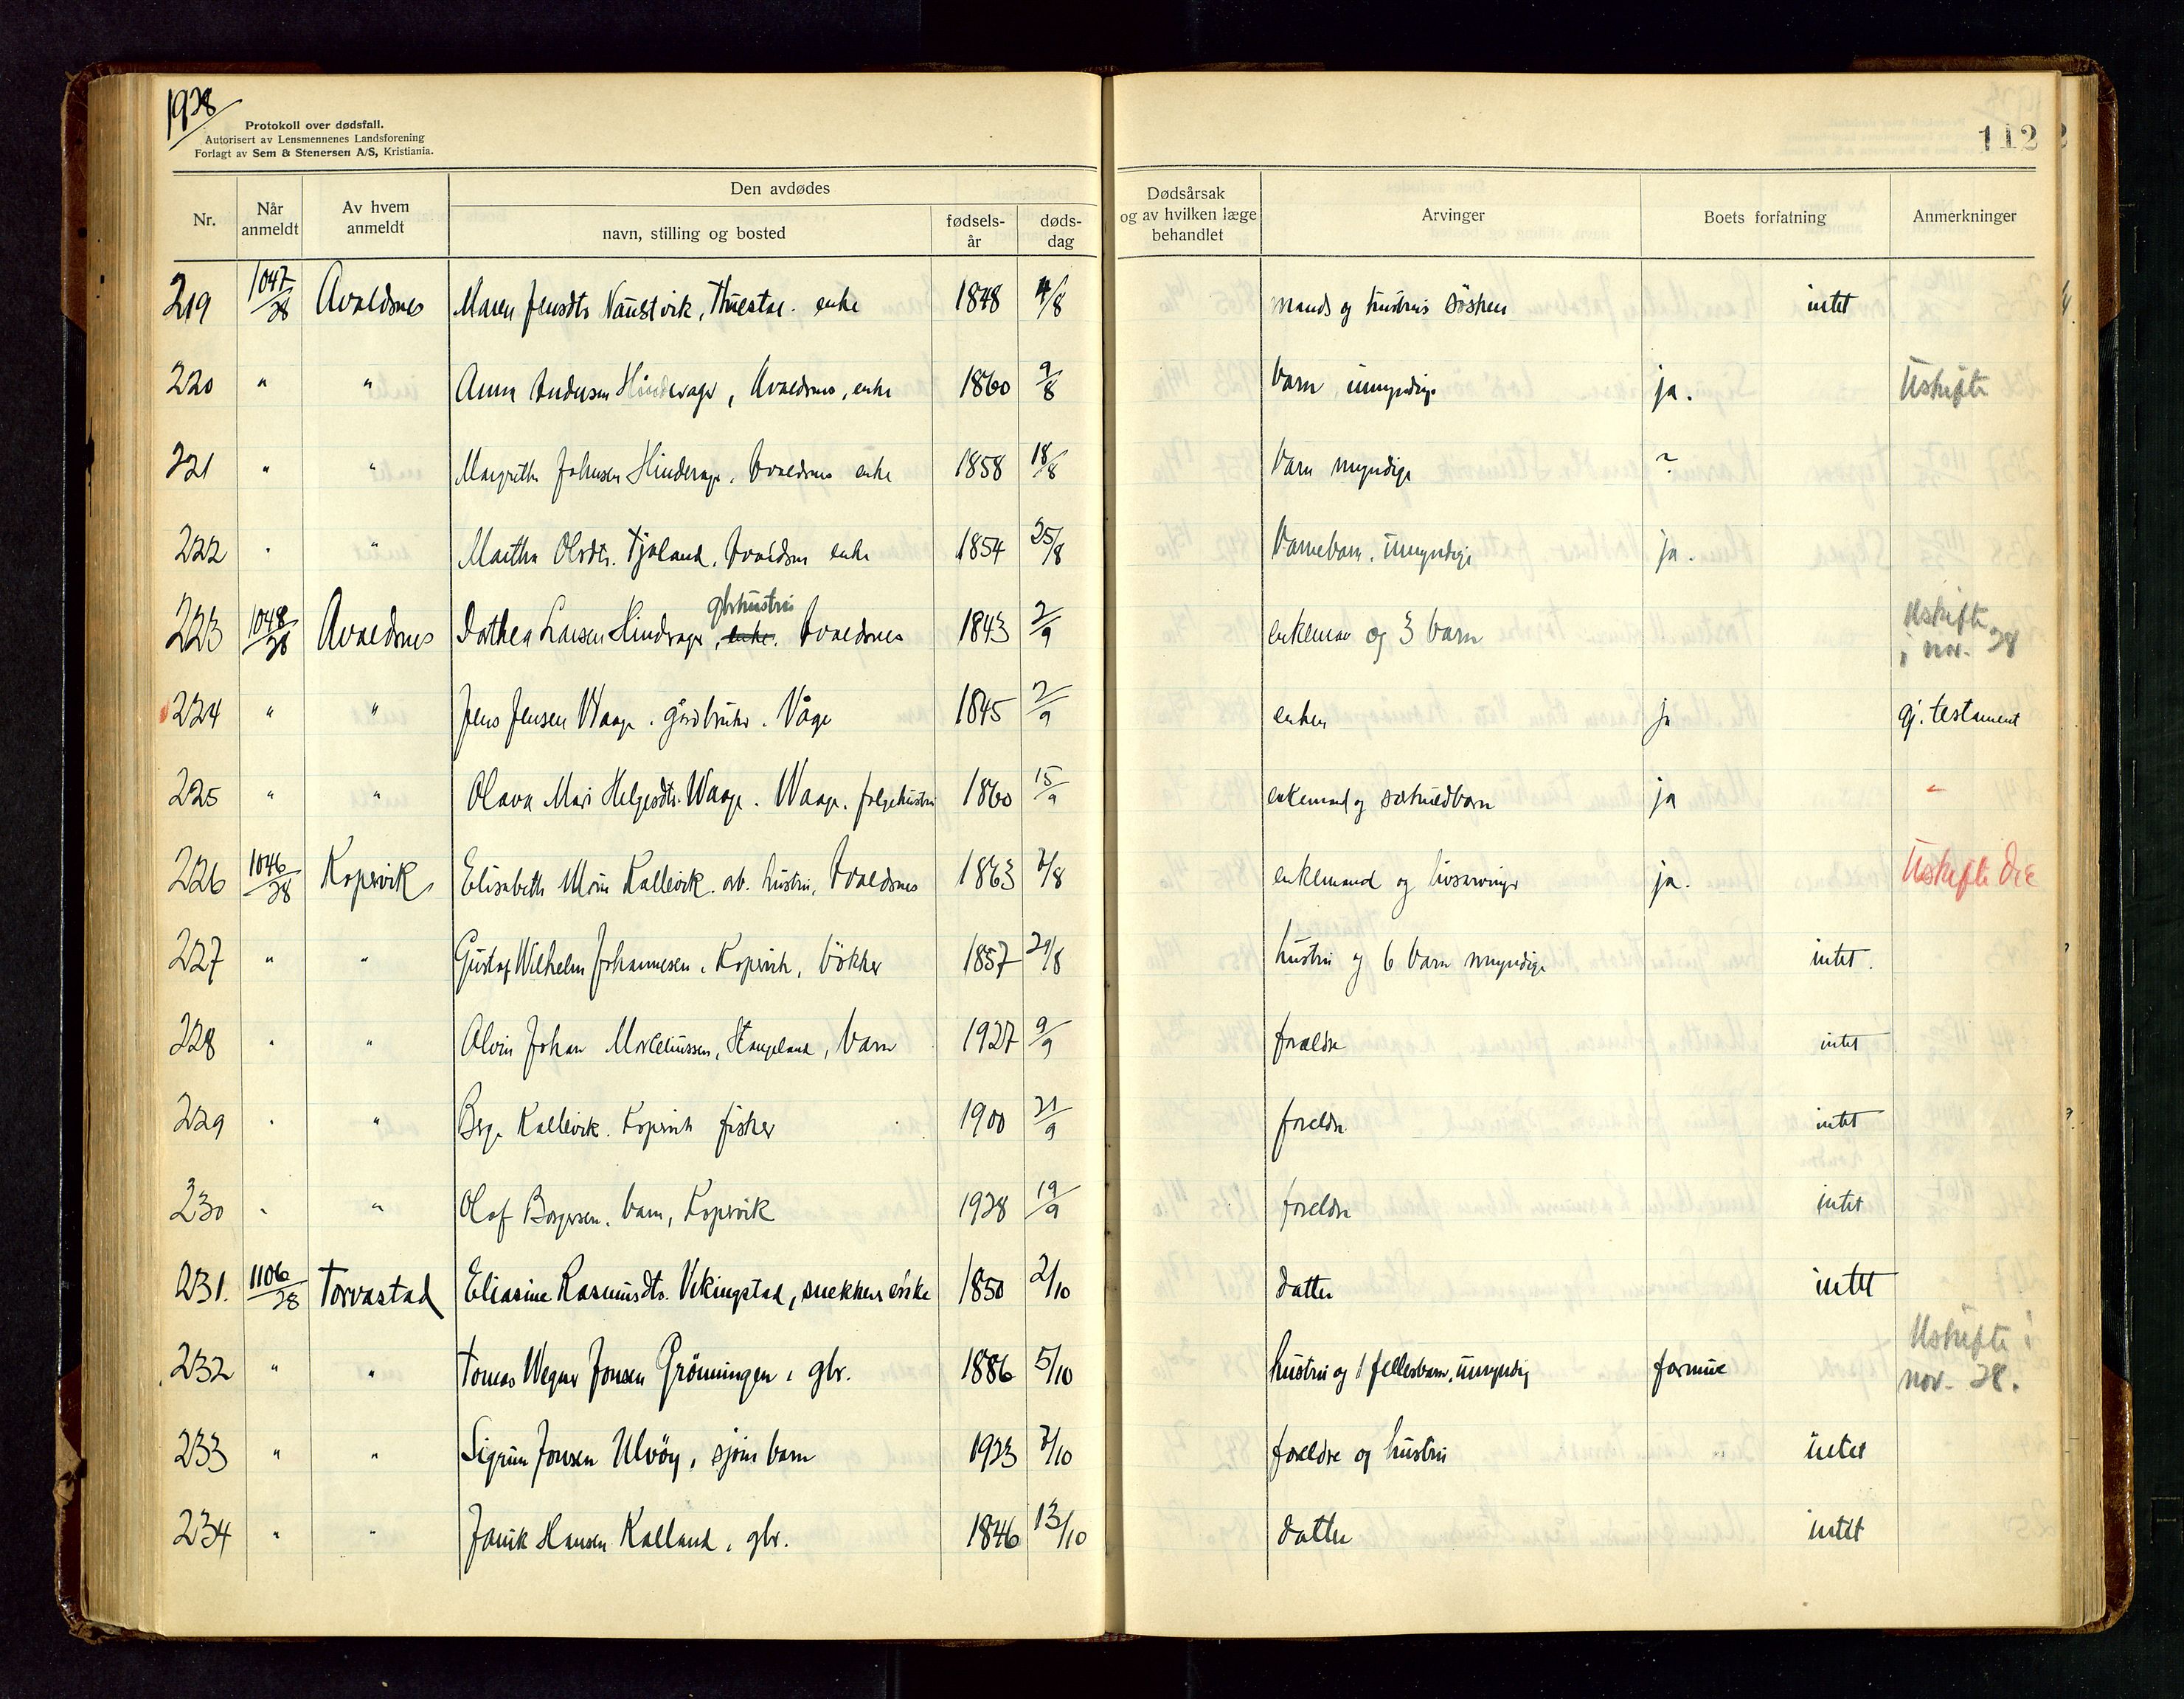 1928
Protokoll over dødsfall.
Autorisert av Lensmennenes Landsforening
Forlagt av Sem & Stenersen A/S, Kristiania.
112
Nr. Når anmeldt Av hvem anmeldt Den avdødes navn, stilling og bosted fødsels-år døds-dag Dødsårsak og av hvilken læge behandlet Arvinger Boets forfatning Anmerkninger
219 1047/28 Avaldsnes Maren Jensdtr Naustvik, enke 1848 4/8 mands og hustrus søsken intet
220 " " Anna Andersen Hinderager, Avaldsnes, enke 1860 9/8 barn umyndige ja. Uskifte
221 " " Margrethe Johnsen Hinderager, Avaldsnes enke 1858 18/8 barn myndige ?
222 " " Martha Olsdtr. Tjøland, Avaldsnes enke 1854 25/8 Barnebarn, umyndige ja.
gbrhustru
223 1048/28 Avaldsnes Dorthea Larsen Hinderager, enke. Avaldsnes 1843 2/9 enkeman og 3 barn Uskifte i nov. 28
224 " " Jens Jensen Waage. gårdbruker. Våge 1845 2/9 enken ja gj. testament
225 " " Olava Mari Helgesdtr. Waage. Waage. folgehustru 1860 15/9 enkemand og særkuldbarn ja "
226 1046/28 Kopervik Elisabeth Marie Kallevik. arb. hustru, Avaldsnes 1863 7/8 enkemand og livsarvinger ja. Uskifte
227 " " Gustaf Wilhelm Johannesen, Kopervik, bøkker 1857 29/8 hustru og 6 barn myndige intet.
228 " " Alvin Johan Morceliussen, Stangeland, barn 1927 9/9 forældre intet
229 " " Kallevik. Kopervik fisker 1900 21/9 foreldre intet
230 " " Olaf Borgersen. barn, Kopervik 1928 19/9 foreldre intet
231. 1106/28 Torvastad Eliasine Rasmusdtr. Vikingstad, snekkers enke 1850 2/10 datter intet
232 " " Tomas Wegner Jonsen Grönningen, gbr. 1886 5/10 hustru og 1 fellesbarn, umyndig formue Uskifte i nov. 28.
233 " " Sigrun Jonsen Ulvöy, sjöm barn 1923 7/10 foreldre og hustru intet
234 " " Janik Hansen Kalland, gbr. 1846 13/10 datter intet